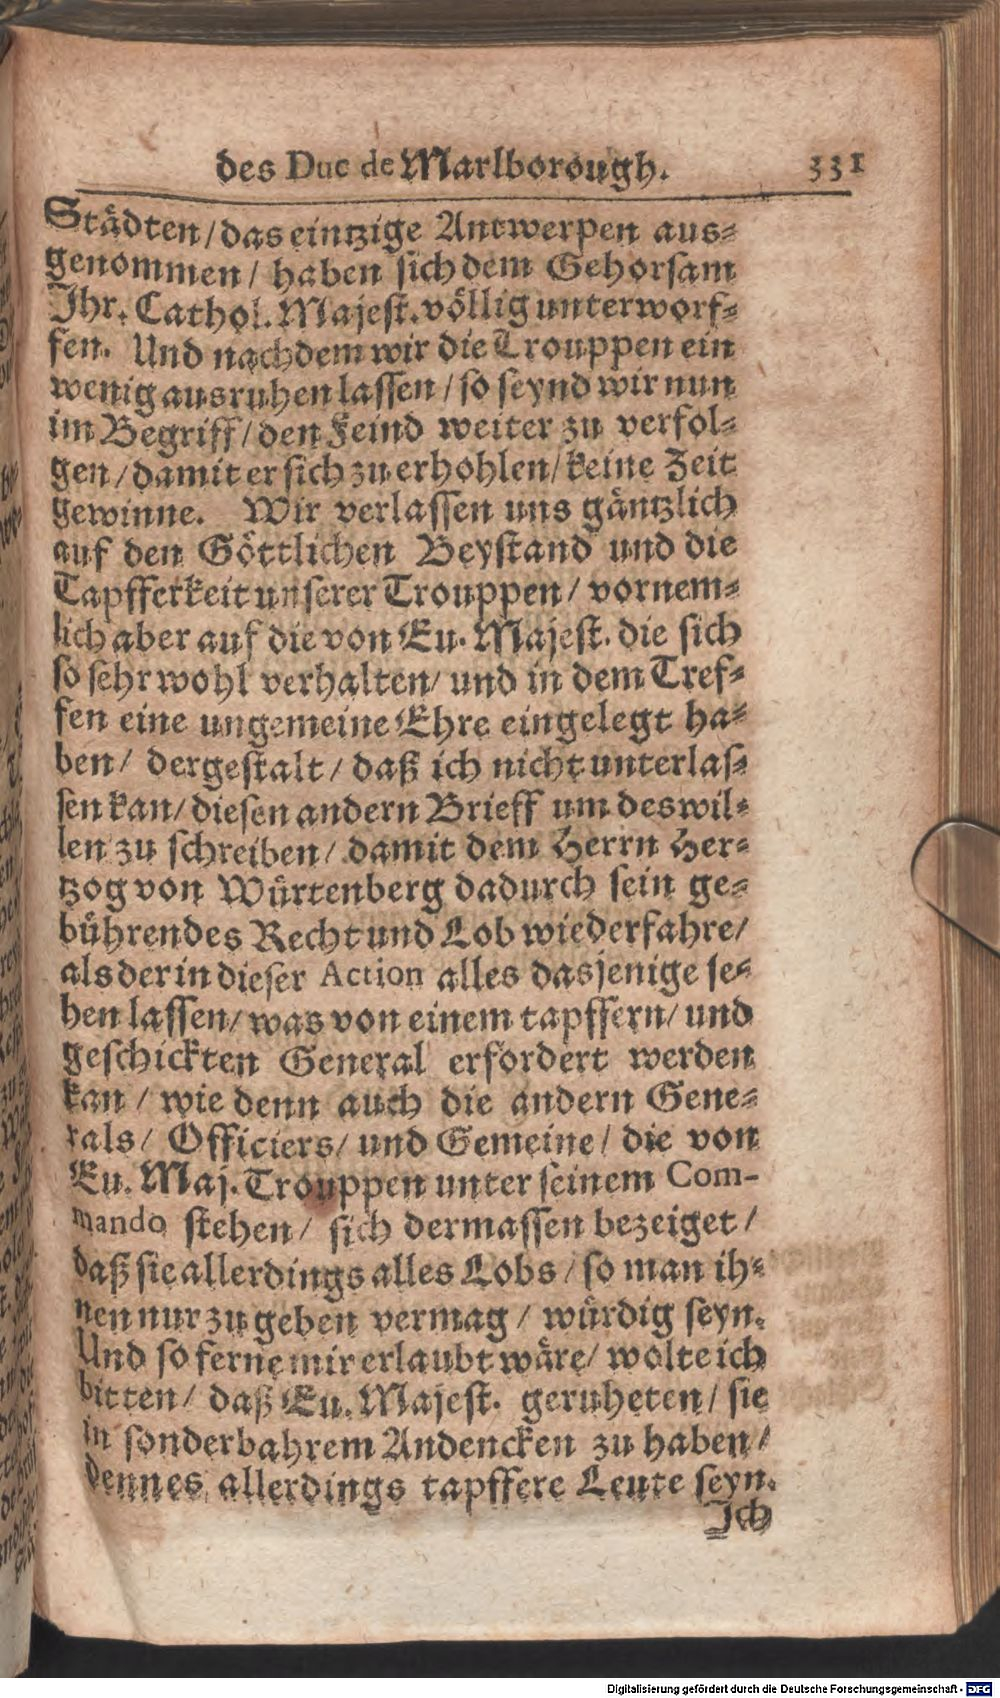 des Duc de Marlborough. 331
Städten/das eintzige Antwerpen aus-
genommen/ haben sich dem Gehorsam
Ihr. Cathol. Majest. völlig unterworf-
fen. Und nachdem wir die Trouppen ein
wenig ausruhen lassen/so seynd wir nun
im Begriff/den Feind weiter zu verfol-
gen/damit er sich zu erhohlen/keine Zeit
gewinne. Wir verlassen uns gäntzlich
auf den Göttlichen Beystand und die
Tapfferkeit unserer Trouppen/ vornem-
lich aber auf die von Eu. Majest. die sich
so sehr wohl verhalten/ und in dem Tref-
fen eine ungemeine Ehre eingelegt ha-
ben/ dergestalt/ daß ich nicht unterlas-
sen kan/diesen andern Brieff um deswil-
len zu schreiben/ damit dem Herrn Her-
tzog von Würtenberg dadurch sein ge-
bührendes Recht und Lob wiederfahre/
als der in dieser Action alles dasjenige se-
hen lassen/was von einem tapffern/ und
geschickten General erfordert werden
kan / wie denn auch die andern Gene-
rals/ Officiers/ und Gemeine/ die von
Eu. Maj. Trouppen unter seinem Com-
mando stehen/ sich dermassen bezeiget/
daß sie allerdings alles Lobs/so man ih-
nen nur zu geben vermag / würdig seyn.
Und so ferne mir erlaubt wäre/ wolte ich
bitten/ daß Eu. Majest. geruheten/ sie
in sonderbahrem Andencken zu haben/
denn es allerdings tapffere Leute seyn.
Ich
Digitalisierung gefördert durch die Deutsche Forschungsgemeinschaft - DFG